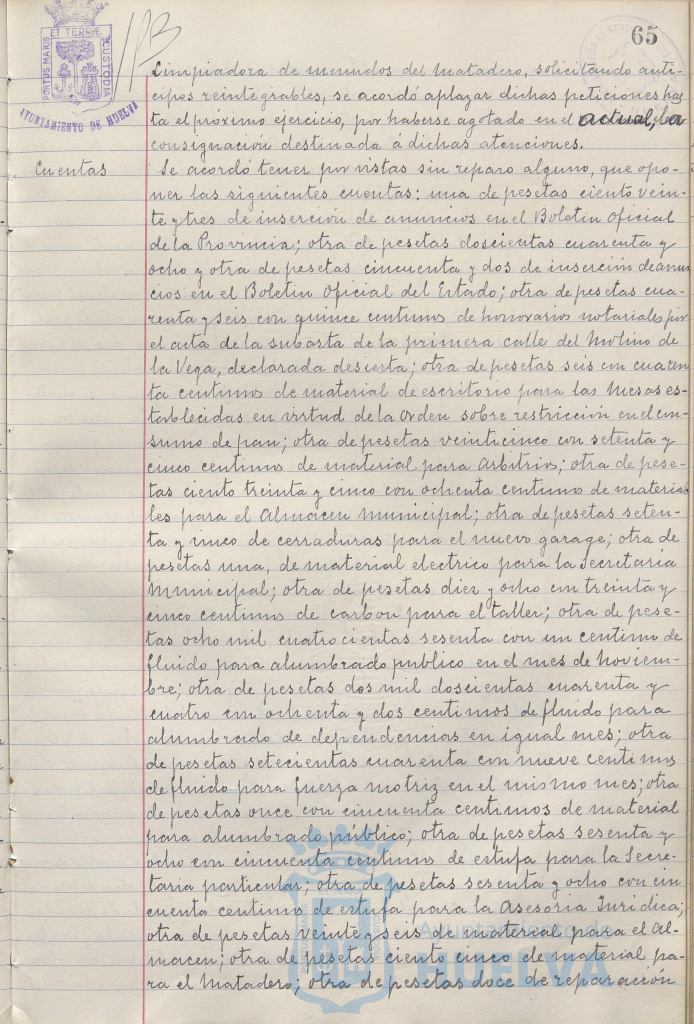 65
PORTUS MARIS
ET TERRÆ
CUSTODIA
AYUNTAMIENTO DE HUELVA
Limpiadora de menudos del Matadero, solicitando anti-
cipos reintegrables, se acordó aplazar dichas peticiones has
ta el próximo ejercicio, por haberse agotado en el actual, la
consignación destinada á dichas atenciones.
Cuentas
Se acordó tener por vistas sin reparo alguno, que opo-
ner las siguientes cuentas: una de pesetas ciento vein-
te y tres de inserción de anuncios en el Boletin Oficial
de la Provincia; otra de pesetas doscientas cuarenta y
ocho y otra de pesetas cincuenta y dos de inserción de anun
cios en el Boletin Oficial del Estado; otra de pesetas cua-
renta y seis con quince centimos de honorarios notariales por
el acta de la subasta de la primera calle del Molino de
la Vega, declarada desierta; otra de pesetas seis con cuaren
ta centimos de material de escritorio para las Mesas es-
tablecidas en virtud de la Orden sobre restricción en el con-
sumo de pan; otra de pesetas veinticinco con setenta y
cinco centimos de material para Arbitrios; otra de pese-
tas ciento treinta y cinco con ochenta centimos de materia
les para el Almacen Municipal; otra de pesetas seten-
ta y cinco de cerraduras para el nuevo garage; otra de
pesetas una, de material electrico para la Secretaría
Municipal; otra de pesetas diez y ocho con treinta y
cinco centimos de carbon para el taller; otra de pese-
tas ocho mil cuatrocientas sesenta con un centimo de
fluido para alumbrado publico en el mes de Noviem-
bre; otra de pesetas dos mil doscientas cuarenta y
cuatro con ochenta y dos centimos de fluido para
alumbrado de dependencias en igual mes; otra
de pesetas setecientas cuarenta con nueve centimos
de fluido para fuerza motriz en el mismo mes; otra
de pesetas once con cincuenta centimos de material
para alumbrado público; otra de pesetas sesenta y
ocho con cincuenta centimos de estufa para la Secre-
taria particular; otra de pesetas sesenta y ocho con cin
cuenta centimos de estufa para la Asesoria Juridica;
otra de pesetas veinte y seis de material para el Al-
macen; otra de pesetas ciento cinco de material pa-
ra el Matadero; otra de pesetas doce de reparación
Ayuntamiento de
HUELVA